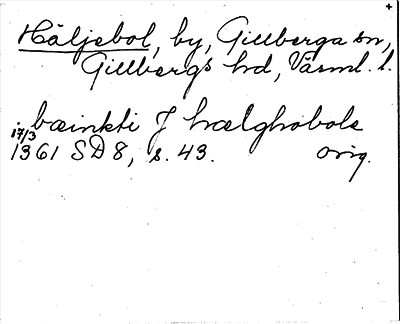 +
Häljebol, by, Gillberga sn,
Gillbergs hd, Värml. l.
bœinkti J hœlghobole
17/3
1361 SD 8, s. 43. orig.